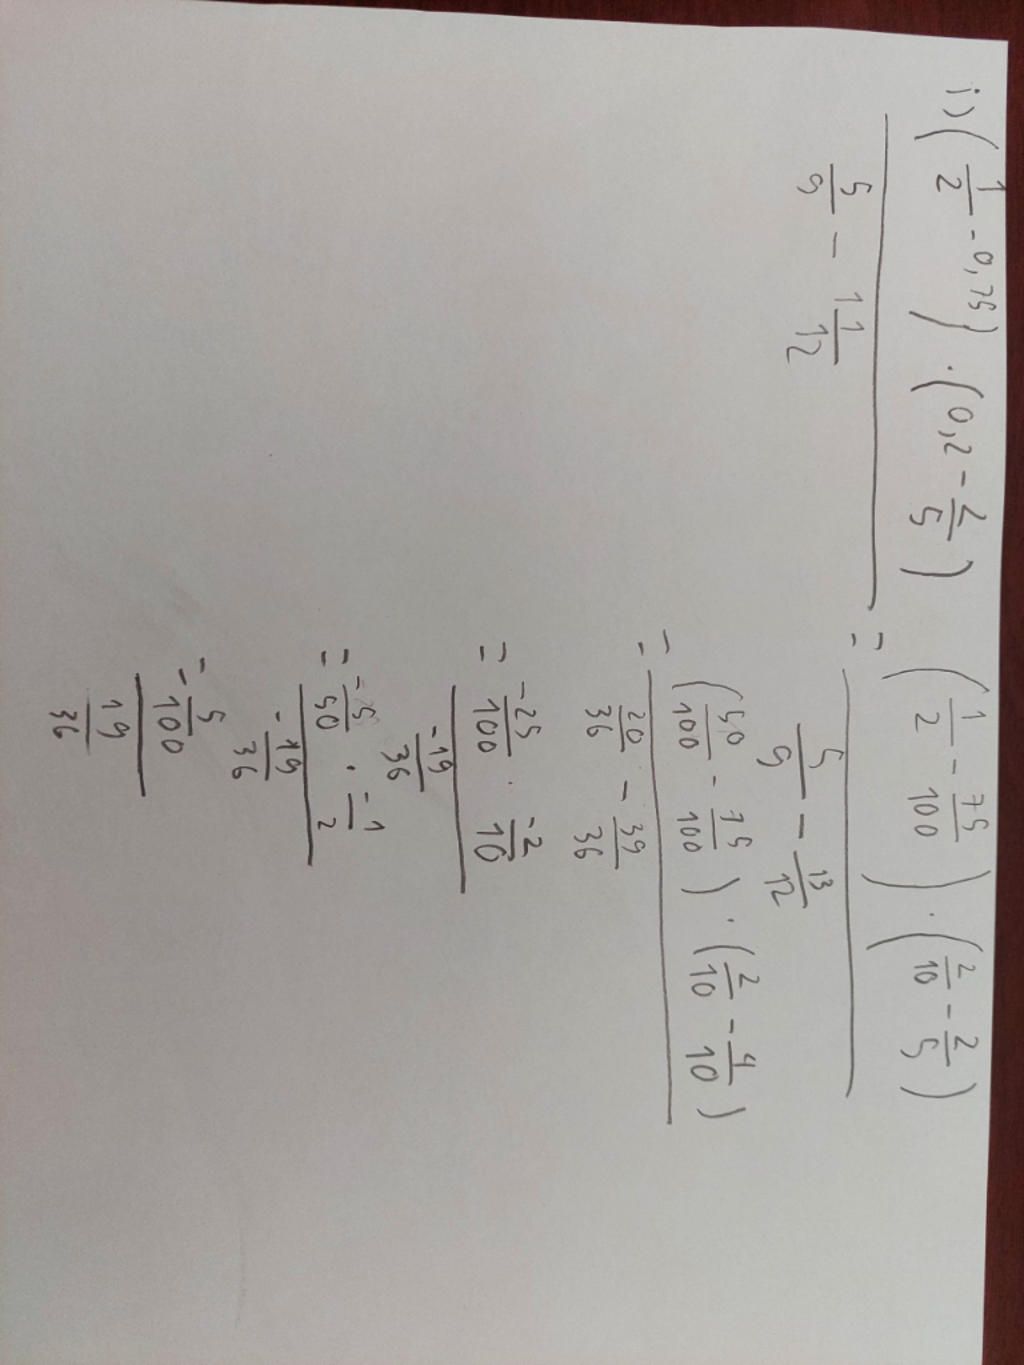 i) (1/2 - 0,75) · (0,2 - 2/5) = (1/2 - 75/100) · (2/10 - 2/5)
5/9 - 1 1/12
5/9 - 13/12
= (50/100 - 75/100) · (2/10 - 4/10)
20/36 - 39/36
= -25/100 · -2/10
-19/36
= -5/50 · -1/2
-19/36
= - 5/100
19/36